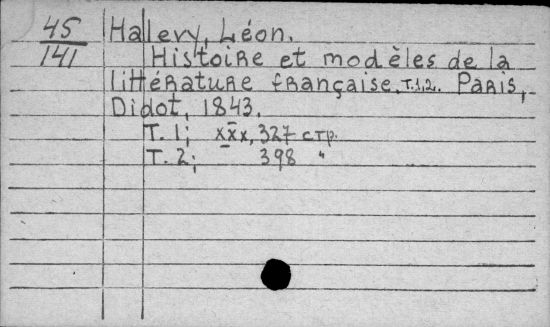 45 Halevy, Léon.
141 Histoire et modèles de la
littérature française, T.1,2. Paris,
Didot, 1843.
T. 1; xxx, 327 стр.
T. 2; 398 "